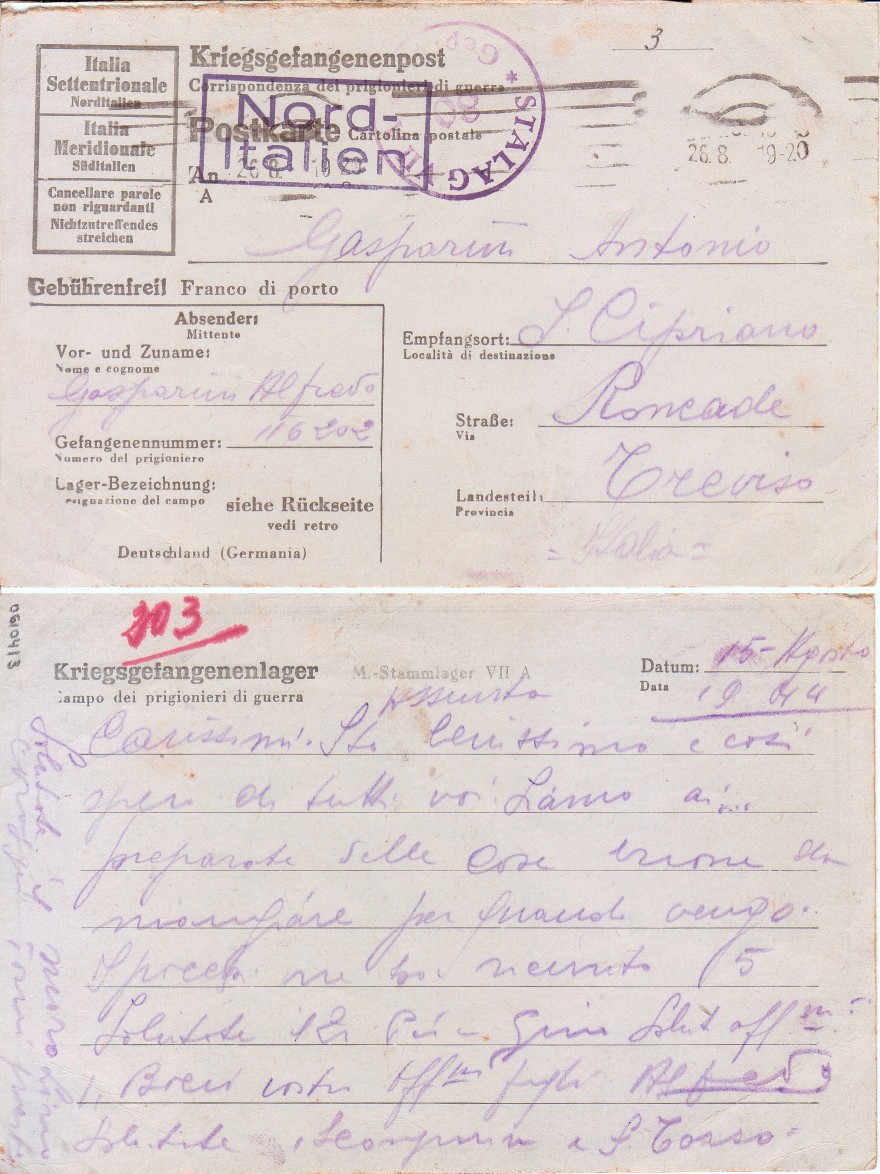 Italia
Settentrionale
Norditalien
Italia
Meridionale
Süditalien
Cancellare parole
non riguardanti
Nichtzutreffendes
streichen
Kriegsgefangenenpost
Corrispondenza dei prigionieri di guerra
Postkarte Cartolina postale
Nord-
Italien
STALAG VII
Gepr.
3
26.8. 19-20
26.8. 19-20
An
A
Gasparini Antonio
Gebührenfrei! Franco di porto
Absender:
Mittente
Vor- und Zuname:
Nome e cognome
Gasparini Alfredo
Gefangenennummer: 116202
Numero del prigioniero
Lager-Bezeichnung:
esignazione del campo
siehe Rückseite
vedi retro
Deutschland (Germania)
Empfangsort: S. Cipriano
Località di destinazione
Straße: Roncade
Via
Landesteil: Treviso
Provincia
= Italia =
0610413
303
Kriegsgefangenenlager M.-Stammlager VII A
Campo dei prigionieri di guerra
Datum: 15- Agosto
Data 1944
Assunta
Carissimi. Sto benissimo e così
spero di tutti voi.
preparate delle cose buone da
mangiare per quando vengo.
ricevuto 5
Salutate
vostro aff.mo figlio Alfredo
Salutate
Salutate il